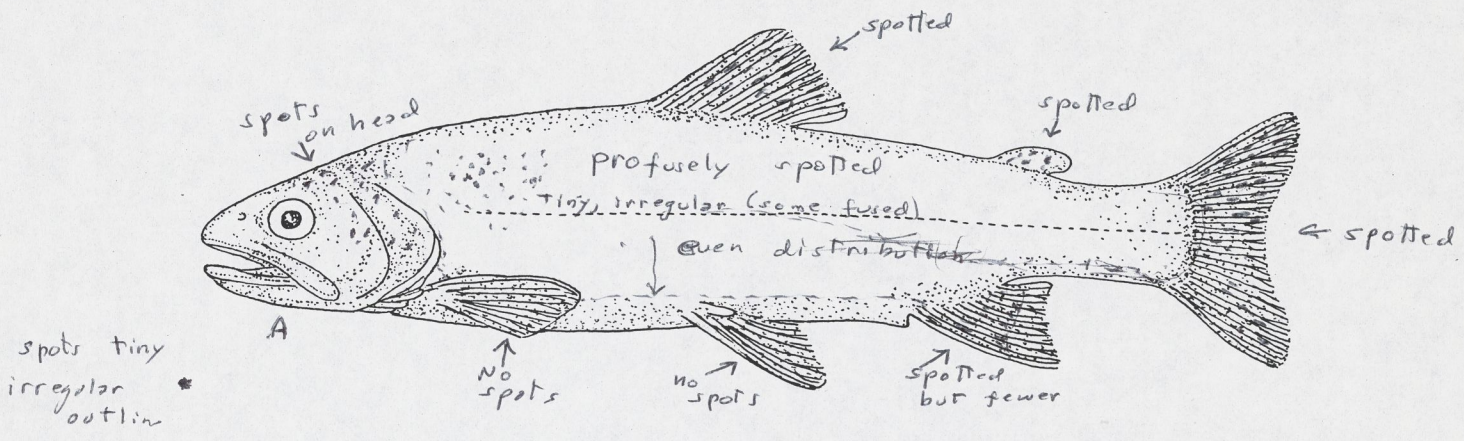 spotted
spotted
spots
on head
profusely spotted
tiny, irregular (some fused)
even distribution
spotted
A
spots tiny
irregular
outlin
No
spots
no
spots
spotted
but fewer